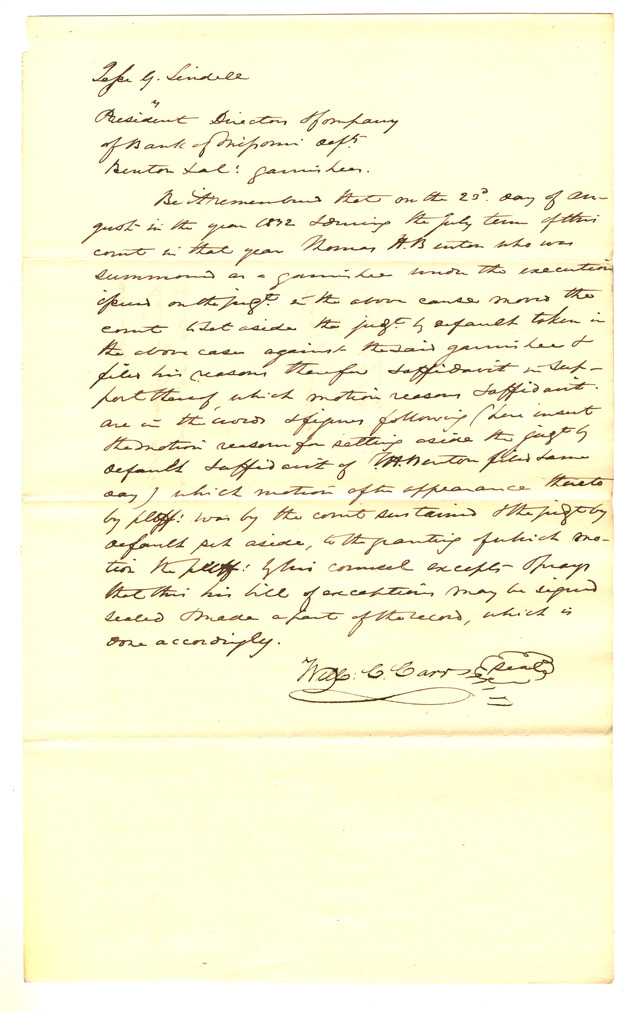 Jesse G. Lindell
vs
President Directors & Company
of Bank of Missouri Deft
Benton & al: garnishees.
Be it remembered that on the 23d. day of au-
gust in the year 1832 & during the July term of this
court in that year Thomas H. Benton who was
summoned as a garnishee under the execution
issued on the judgt. in the above cause moved the
court to set aside the judgt. by default taken in
the above case against the said garnishee &
filed his reasons therefor & affidavit in sup-
port thereof, which motion reasons & affidavit
are in the words & figures following (here insert
the motion reasons for setting aside the judgt by
default & affidavit of T.H. Benton filed same
day) which motion after appearance thereto
by plttff: was by the court sustained & the judgt by
default set aside, to the granting of which mo-
tion the plttff: by his counsel excepts & prays
that this his bill of exceptions may be signed
sealed & made a part of the record, which is
done accordingly.
Wm. C. Carr seal